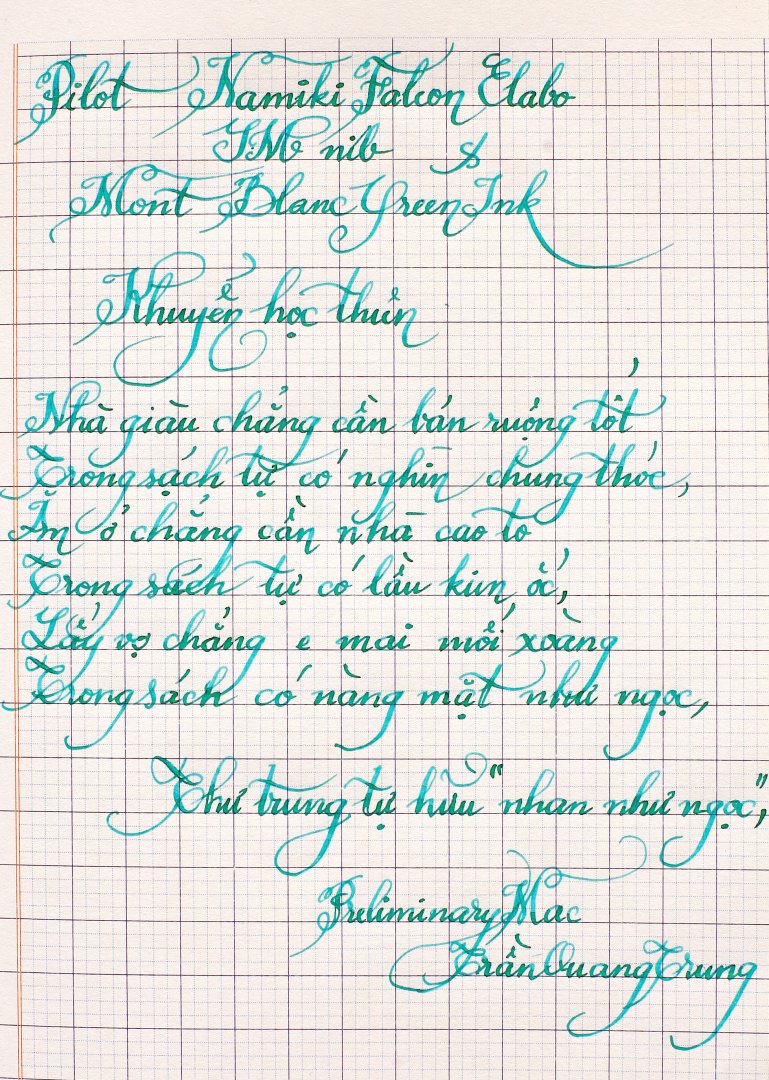 Pilot Namiki Falcon Elabo
SM nib &
Mont Blanc Green Ink
Khuyến học thiên
Nhà giàu chẳng cần bán ruộng tốt
Trong sách tự có nghìn chung thóc,
Ăn ở chẳng cần nhà cao to
Trong sách tự có lầu kim ốc,
Lấy vợ chẳng e mai mối xoàng
Trong sách có nàng mặt như ngọc,
Thư trung tự hữu "nhan như ngọc",
Preliminary Mac
Trần Quang Trung